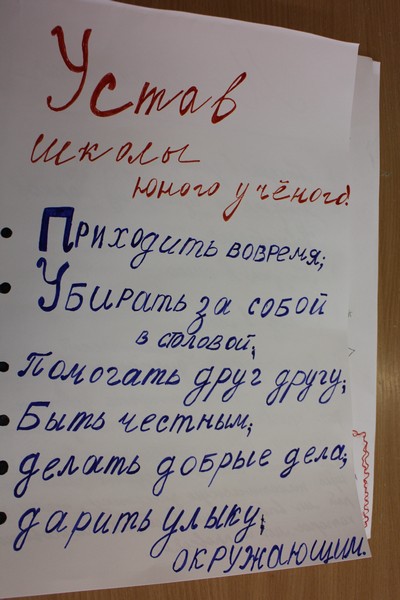 Устав
школы
юного учёного!
• Приходить вовремя;
• Убирать за собой
в столовой;
• Помогать друг другу;
• Быть честным;
• делать добрые дела;
• дарить улыку;
окружающим.